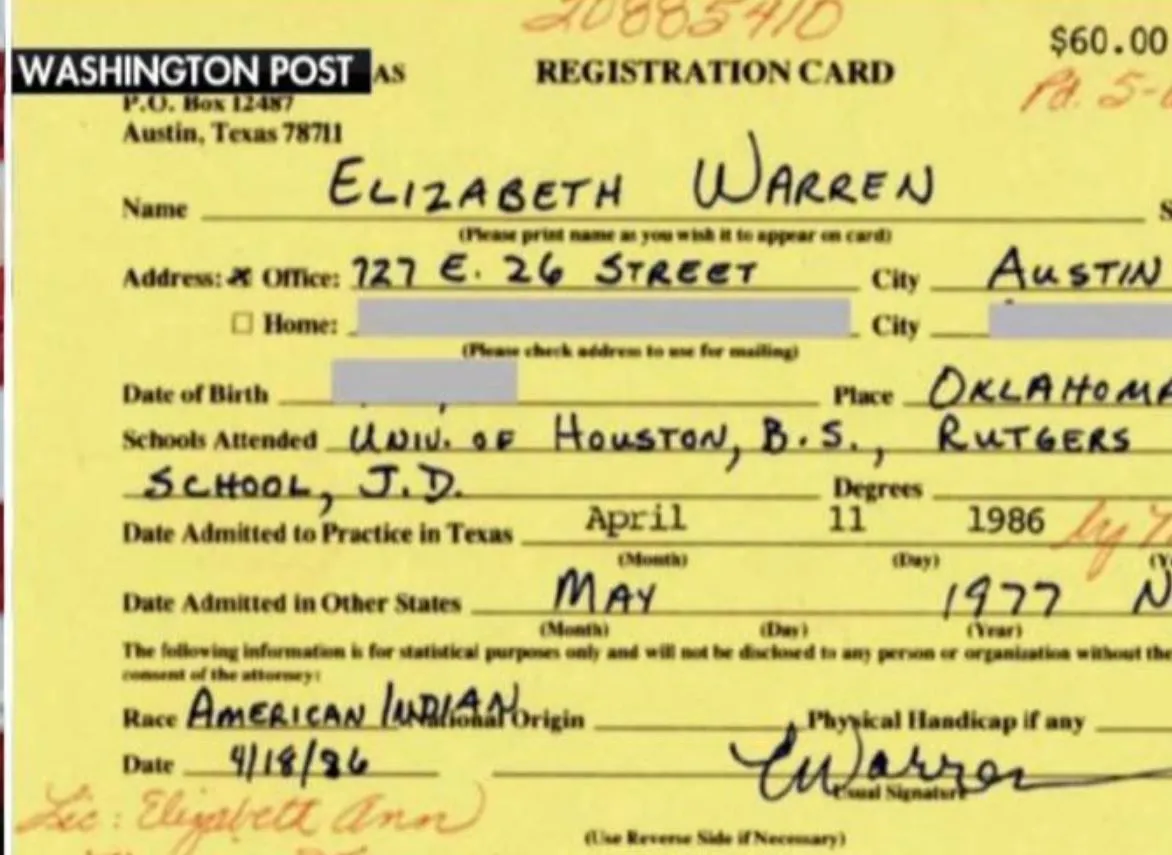 20885410
$60.00
WASHINGTON POST AS REGISTRATION CARD
Pd. 5-
P.O. Box 12487
Austin, Texas 78711
Name ELIZABETH WARREN
(Please print name as you wish it to appear on card)
Address: Office: 727 E. 26 STREET City AUSTIN
Home: City
(Please check address to use for mailing)
Date of Birth Place OKLAHOMA
Schools Attended UNIV. OF HOUSTON, B.S., RUTGERS
SCHOOL, J.D. Degrees
Date Admitted to Practice in Texas April 11 1986 by
(Month) (Day)
Date Admitted in Other States MAY 1977 N
(Month) (Day) (Year)
The following information is for statistical purposes only and will not be disclosed to any person or organization without the
consent of the attorney:
Race AMERICAN INDIAN National Origin Physical Handicap if any
Date 4/18/86 EWarren
Usual Signature
Lic: Elizabeth Ann
(Use Reverse Side if Necessary)